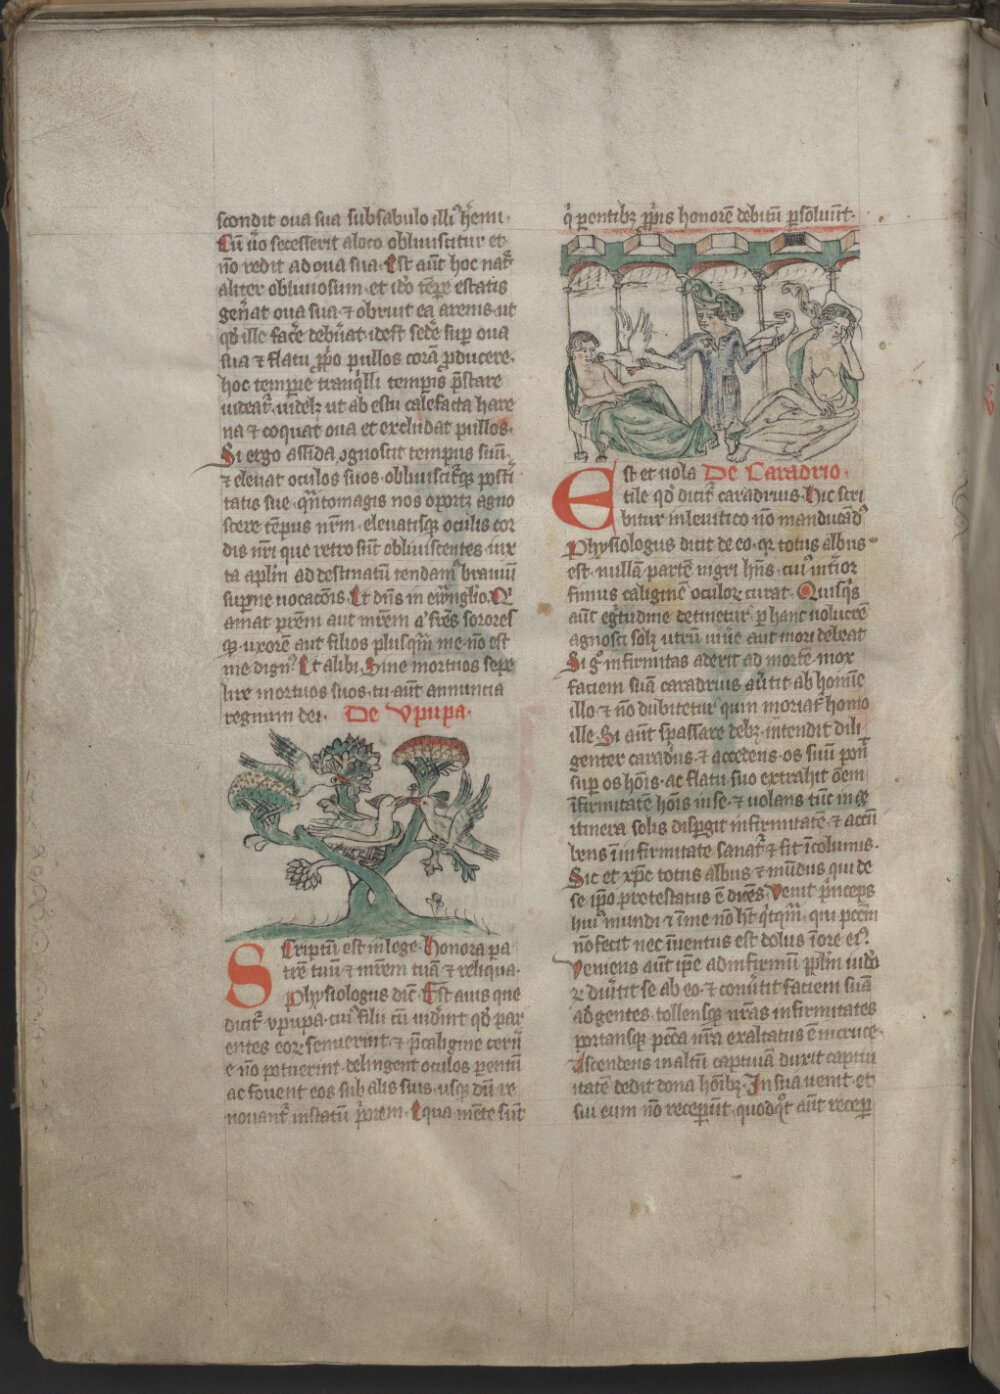 scondit oua sua sub sabulo illiꝰ h̄emi·
Cū ūo secesserit a loco obliuiscitur et
nō redit ad oua sua· Est aūt hoc nat͛
aliter obliuiosum· et id̾o tēpe estatis
gen̄at oua sua ⁊ obruit ea arenis· ut
qd̾ ille fac̄e deb̄uat· idest sed̄e sup̄ oua
sua ⁊ flatu ꝓp̾o pullos corā ꝓducere·
hoc temperie tranq̾lli temp̄is p̄stare
uideat᷑· uidelꝫ ut ab estu calefacta hare
na ⁊ coquat oua et excludat pullos·
Si ergo assida ꝯgnoscit tempus suū·
⁊ eleuat oculos suos· obliuiscit᷑qꝫ post̾i
tatis sue· qn̄tomagis nos oportꝫ agno
scere tēpus nr̄m· eleuatisqꝫ oculis cor
dis nr̄i que retro sūt obliuiscentes· iux
ta aplm̄ ad destinatū tendamꝰ brauiū
superne uocacōis· Et dn̄s in ew̄nglio· Q'
amat prēm aut mrēm a' frēs sorores
qꝫ uxorē aut filios plusqm̄ me· nō est
me dignꝰ· Et alibi· Sine mortuos sepe
lire mortuos suos· tu aūt annuncia
regnum dei· De Vpupa·
Scriptū est in lege· Honora pa
trē tuū ⁊ mrēm tuā ⁊ reliqua·
Physiologus dic̄· Est auis que
dicit᷑ vpupa· cuiꝰ filii cū uid̾int qd̾ par
entes eoꝝ senuerint· ⁊ p̄ caligine cern̄
e nō potuerint· delingent oculos pentū
ac fouent eos sub alis suis· usqꝫ dū re
nouant᷑ in statū p̾rem· Equa mēte sūt
q̾ pentibꝫ ꝓp̾is honorē debitū ꝑsoluūt·
Est et uola De Caradrio·
tile qd̾ dicit᷑ caradrius· Hic scri
bitur in leuitico nō manducād'
Physiologus dicit de eo· qꝛ totus albus
est· nullā partē nigri hn̄s· cuiꝰ int̄ior
fimus caliginē oculoꝝ curat· Quisq̾s
aūt eg̾tudine detinetur ꝑ hanc uolucrē
agnosci solꝫ utrū uiue aut mori debeat
Si g̊ infirmitas aderit ad mortē· mox
faciem suā caradrius au̾tit ab homīe
illo· ⁊ nō dubitetur quin moriat᷑ homo
ille· Si aūt spassare debꝫ· intendit dili
genter carad̾us· ⁊ accedens· os suū pon̄
sup̄ os hōis· ac flatu suo extrahit ōem
īfirmitatē hōis in se· ⁊ uolans tūc in ae
itinera solis disp̄git infirmitatē ⁊ accū
bens īinfirmitate sanat᷑ ⁊ fit īcolumis·
Sic et xp̄c totus albus ⁊ mūdus qui de
se ip̄o protestatus ē dicēs· Venit p̾nceps
huiꝰ mundi ⁊ īme nō h̄t q̾cqm̄· qui pccm̄
nō fecit nec īuentus est dolus ī ore eiꝰ·
Veniens aūt ip̄e ad infirmū pplm̄ iud̾o
ꝝ diu̾tit se ab eo· ⁊ conu̾tit faciem suā
ad gentes· tollensqꝫ nr̄as infirmitates
portansqꝫ pccā nr̄a exaltatus ē in cruce·
Ascendens in altū captiuā duxit captiu
itatē dedit dona hōibꝫ· In sua uenit et
sui eum nō recep̄ūt· quodqt̾ aūt recep̄